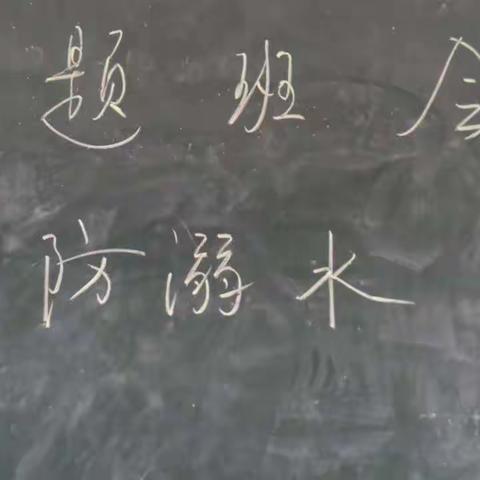 题班会
防溺水